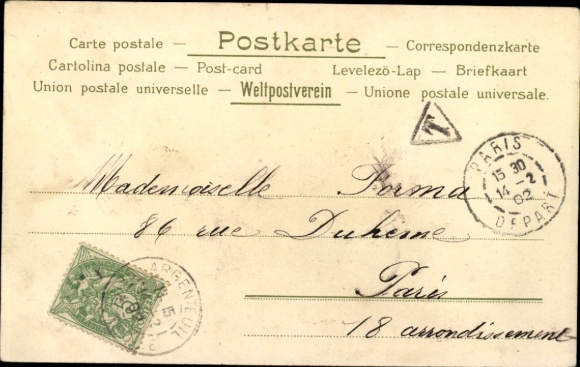 Carte postale — Postkarte — Correspondenzkarte
Cartolina postale — Post-card Levelezö-Lap — Briefkaart
Union postale universelle — Weltpostverein — Unione postale universale.
T
PARIS
15 30
14 - 2
02
DEPART
Mademoiselle Porma
86 rue Duhesme
Paris
18 arrondissement
ARGENTEUIL